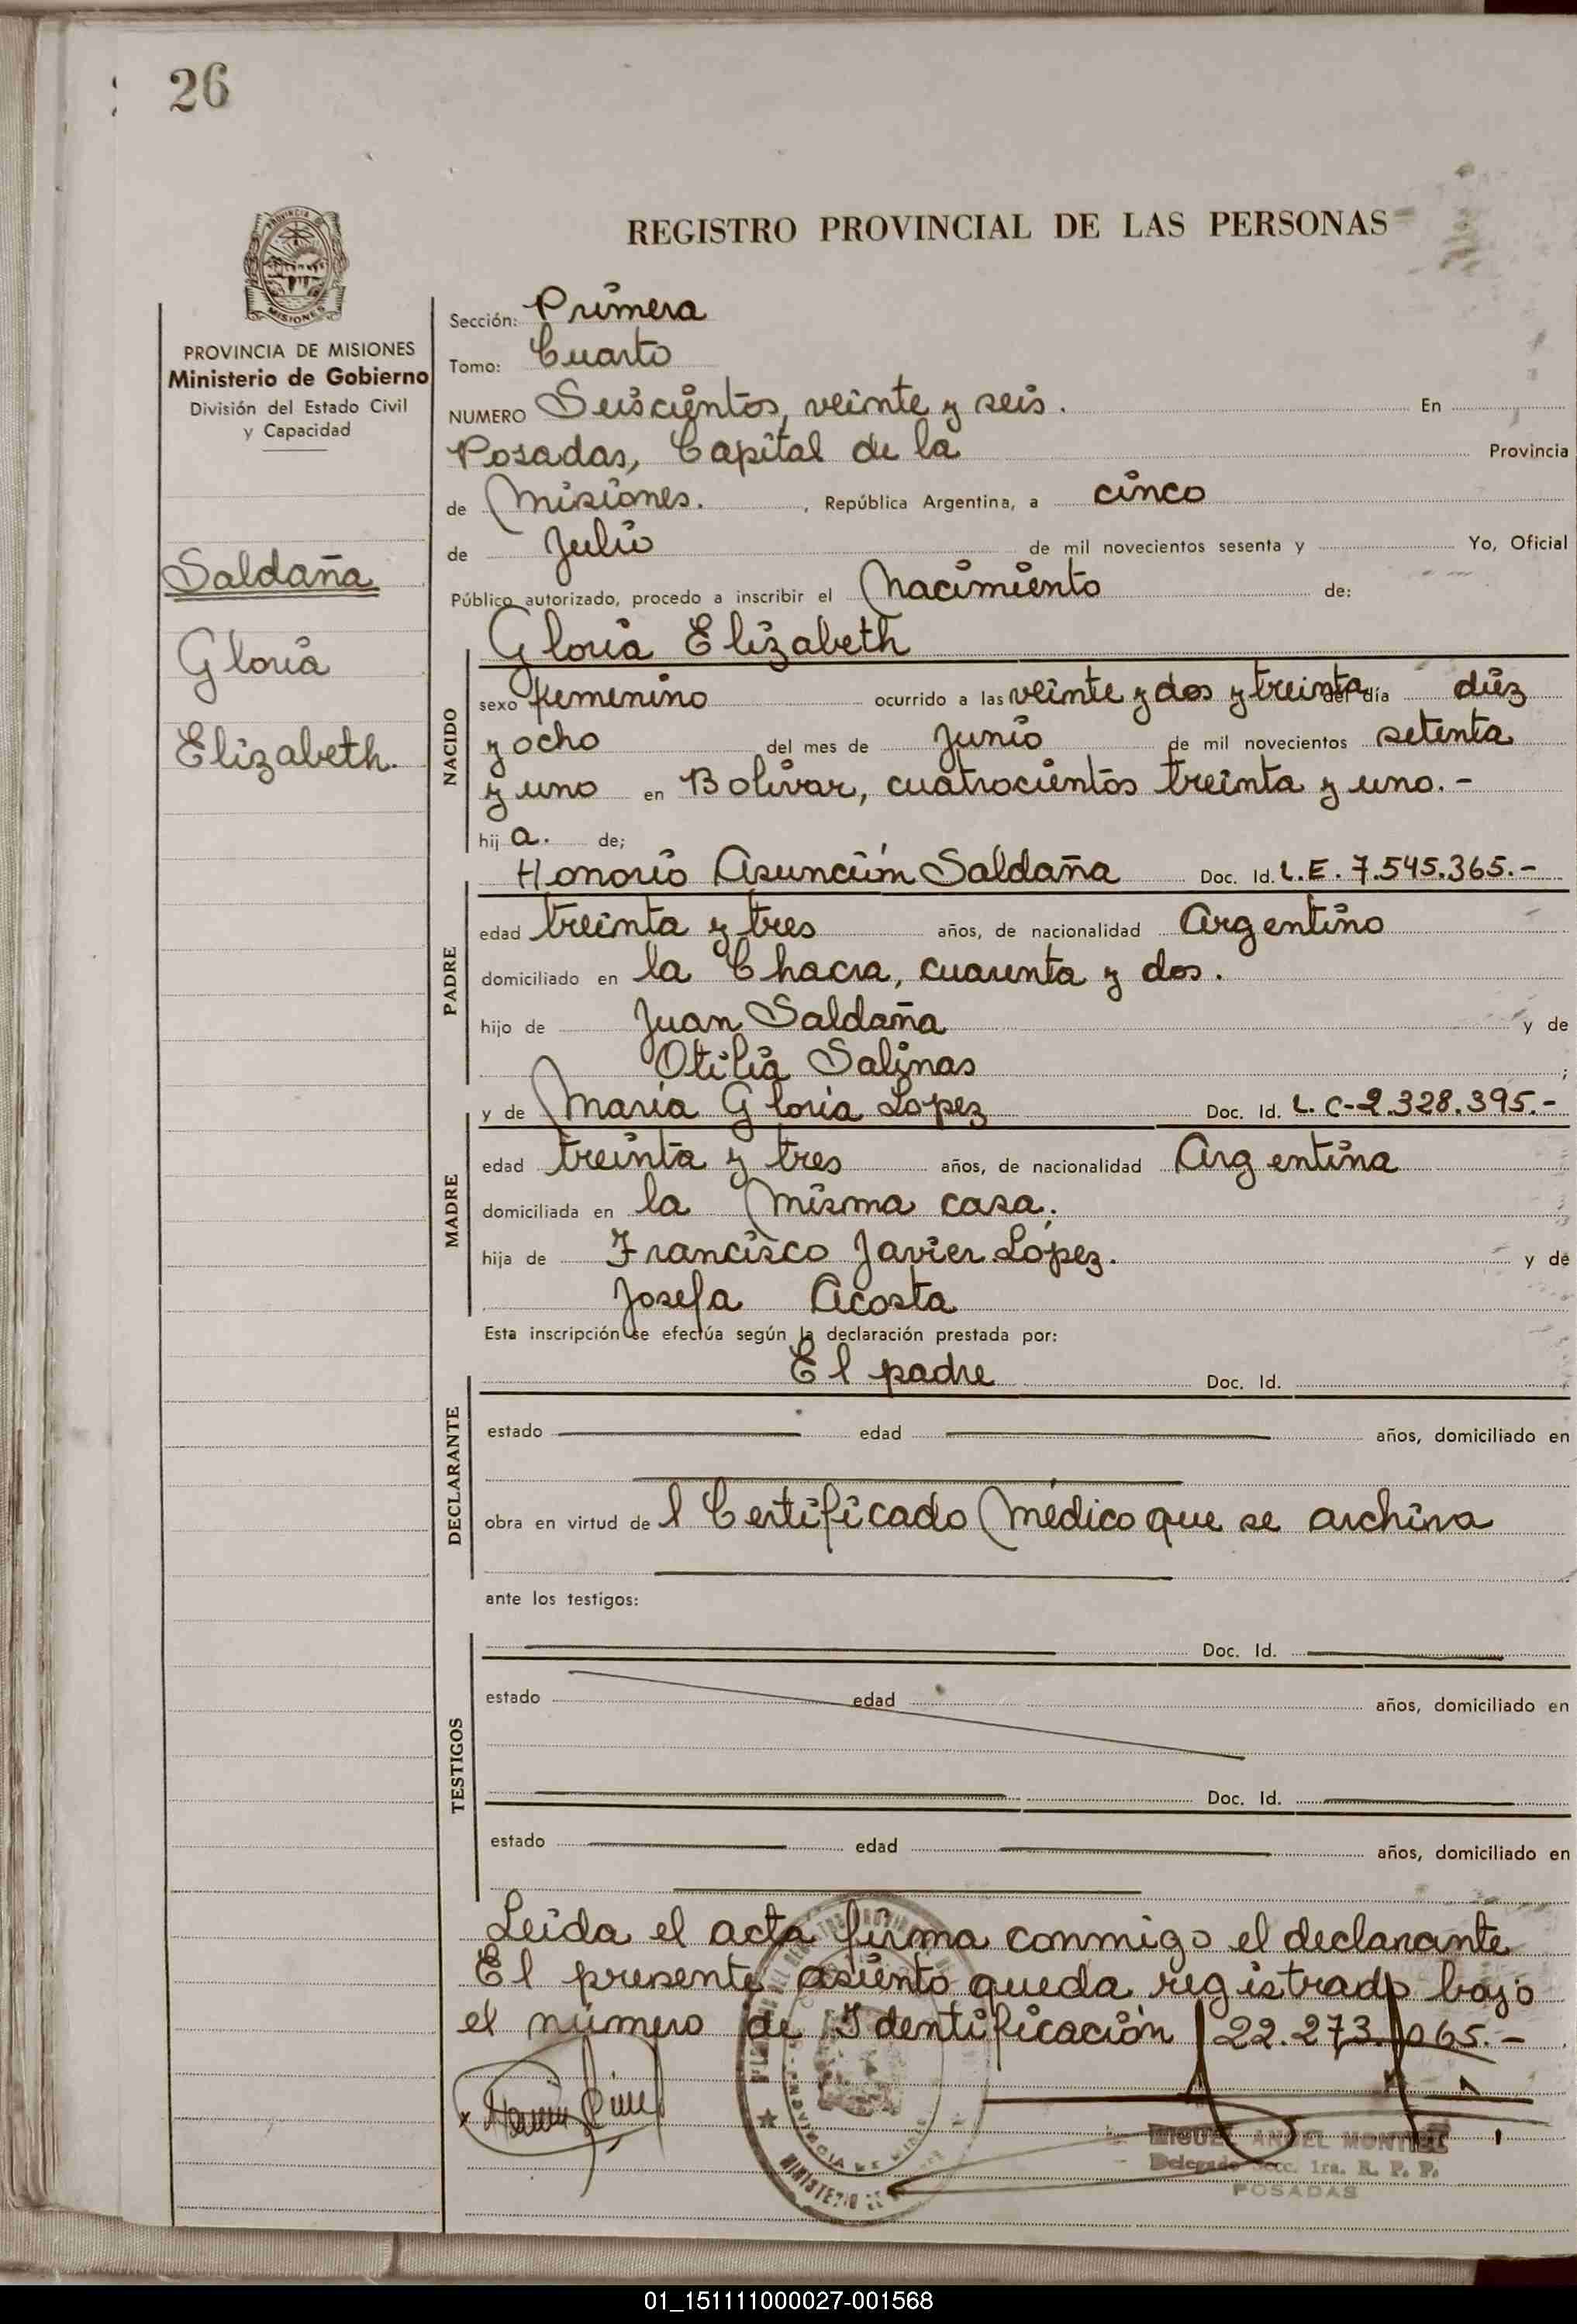 26
REGISTRO PROVINCIAL DE LAS PERSONAS
MISIONES
PROVINCIA DE MISIONES
Ministerio de Gobierno
División del Estado Civil
y Capacidad
Saldaña
Gloria
Elizabeth.
Sección: Primera
Tomo: Cuarto
NUMERO Seiscientos, veinte y seis. En
Posadas, Capital de la Provincia
de Misiones. , República Argentina, a cinco
de Julio de mil novecientos sesenta y Yo, Oficial
Público autorizado, procedo a inscribir el Nacimiento de:
Gloria Elizabeth
NACIDO
sexo femenino ocurrido a las veinte y dos y treinta del día diez
y ocho del mes de Junio de mil novecientos setenta
y uno en Bolívar, cuatrocientos treinta y uno.-
hij a. de;
Honorio Asunción Saldaña Doc. Id. L.E. 7.545.365.-
PADRE
edad treinta y tres años, de nacionalidad Argentino
domiciliado en la Chacra, cuarenta y dos.
hijo de Juan Saldaña y de
Otilia Salinas ;
y de María Gloria Lopez Doc. Id. L.C-2.328.395.-
MADRE
edad treinta y tres años, de nacionalidad Argentina
domiciliada en la misma casa;
hija de Francisco Javier López. y de
Josefa Acosta
Esta inscripción se efectúa según la declaración prestada por:
El padre Doc. Id.
DECLARANTE
estado edad años, domiciliado en
obra en virtud de l Certificado Médico que se archiva
ante los testigos:
TESTIGOS
Doc. Id.
estado edad años, domiciliado en
Doc. Id.
estado edad años, domiciliado en
Leida el acta firma conmigo el declarante
El presente asiento queda registrado bajo
el número de Identificación 22.273.065.-
MIGUEL ANGEL MONTIEL
Delegado Secc. 1ra. R. P. P.
POSADAS
01_151111000027-001568